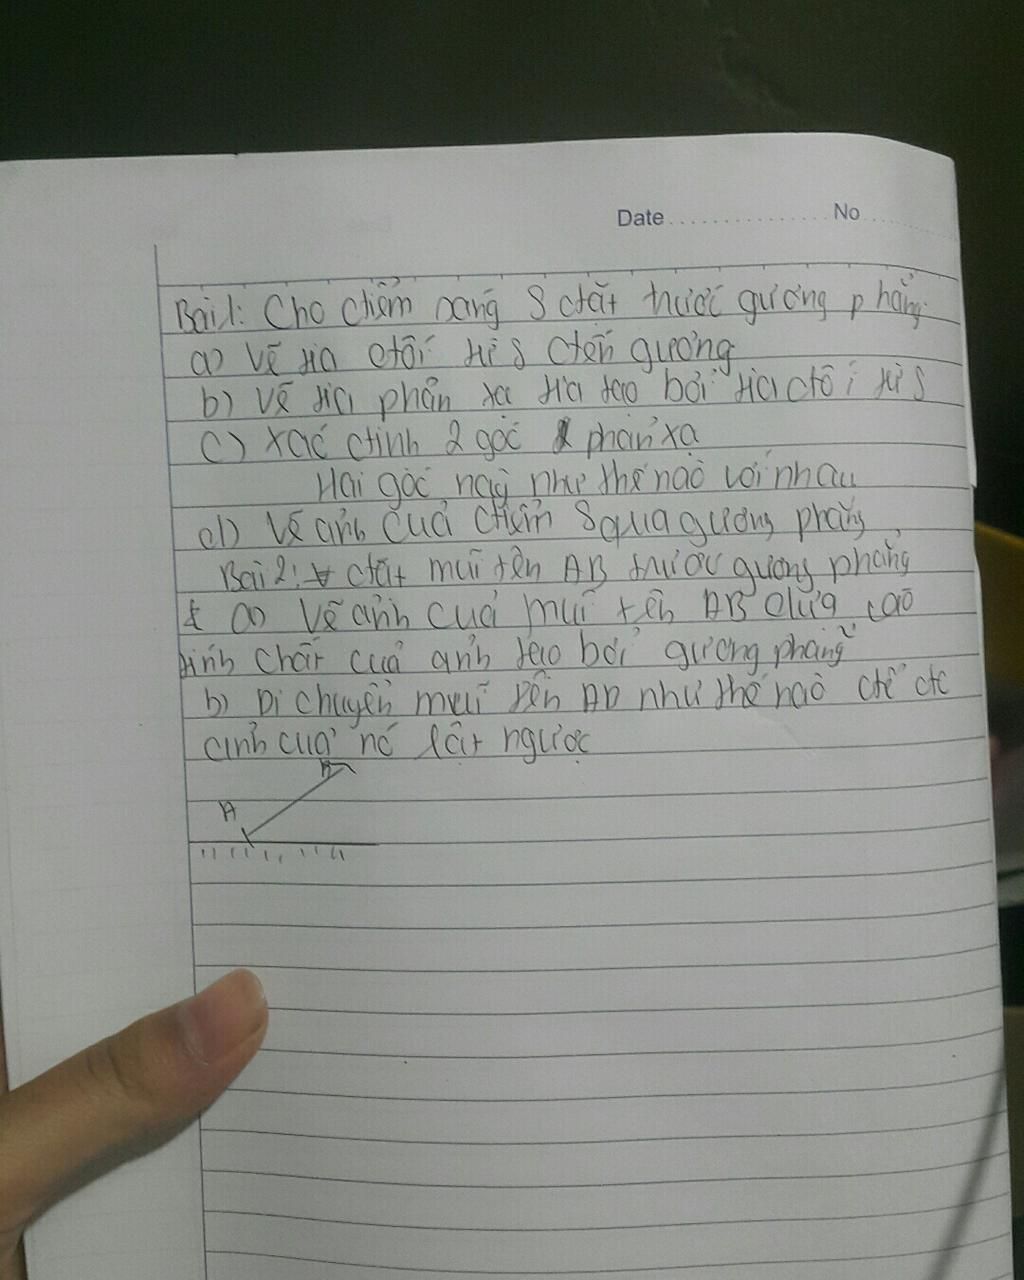 Date ............... No ......
Bài 1: Cho điểm sáng S đặt trước gương phẳng.
a) Vẽ tia tới từ S đến gương
b) Vẽ tia phản xạ tạo bởi tia tới từ S
c) Xác định 2 góc phản xạ
Hai góc này như thế nào với nhau
d) Vẽ ảnh của điểm S qua gương phẳng
Bài 2: đặt mũi tên AB trước gương phẳng
a) Vẽ ảnh của mũi tên AB dựa vào
tính chất của ảnh tạo bởi gương phẳng
b) Di chuyển mũi tên AB như thế nào để đc
ảnh của nó lật ngược
B
A